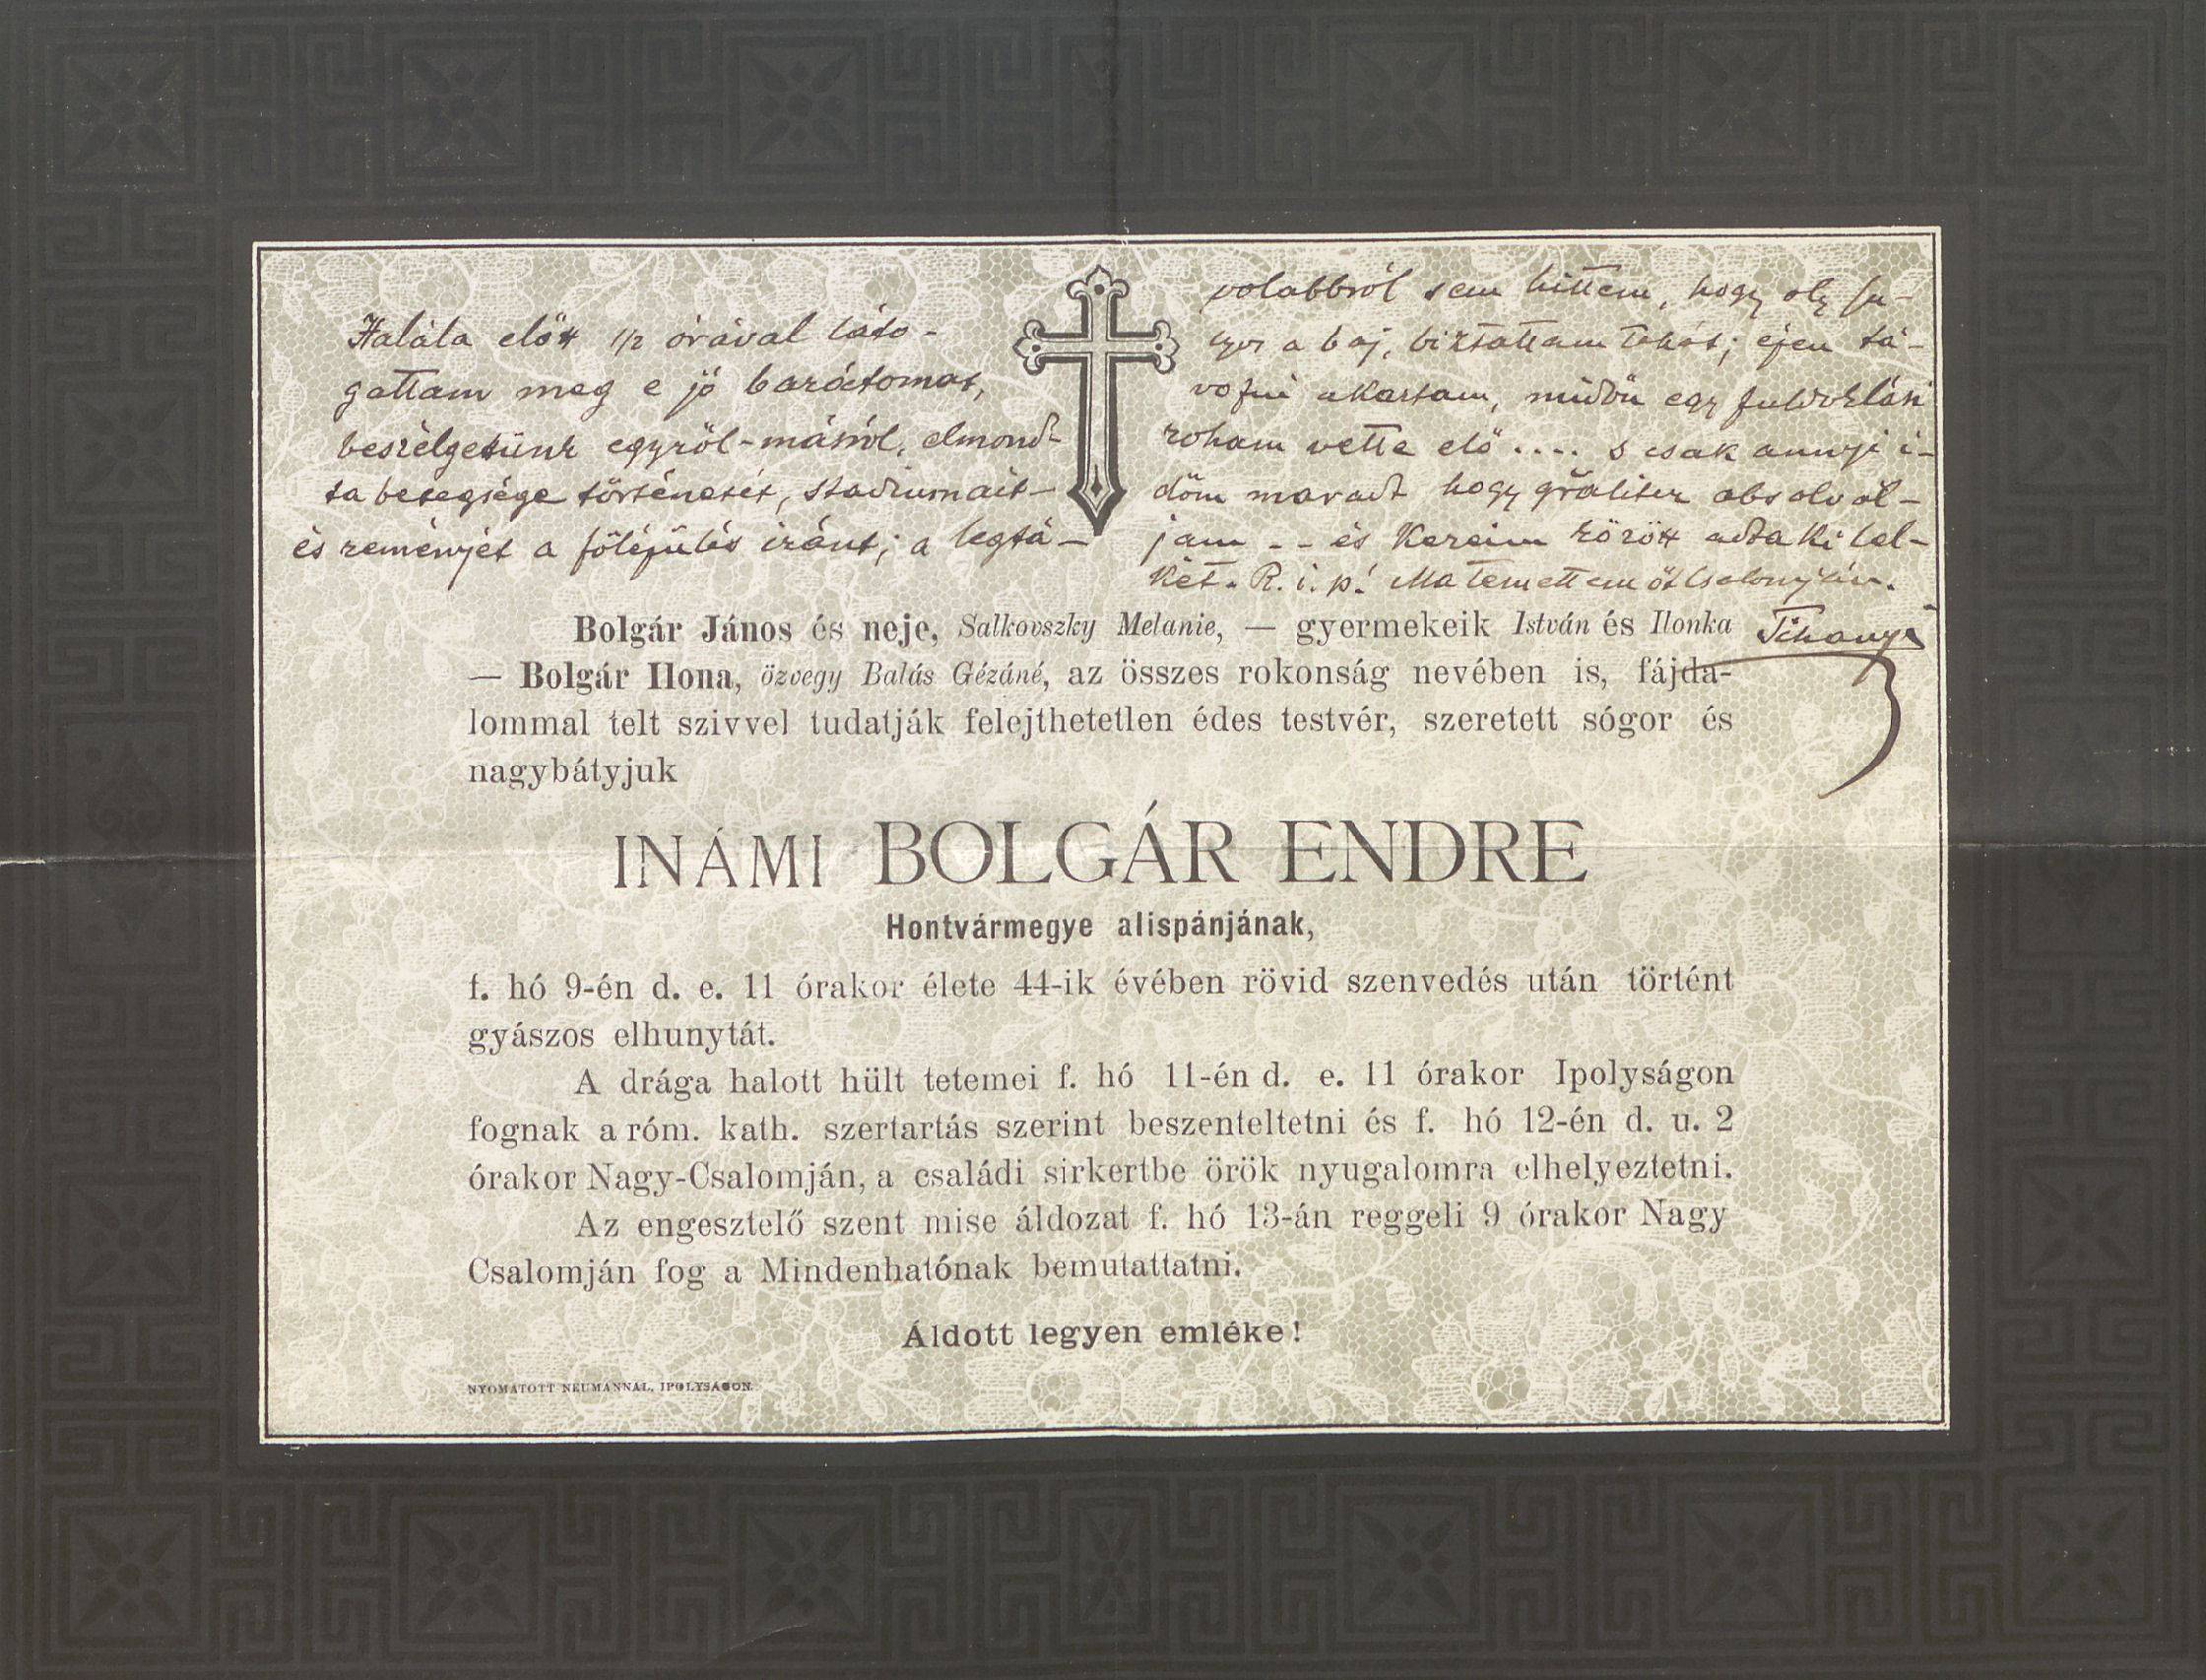 Halála előtt 1/2 órával láto-
gattam meg e jó barátomat,
beszélgetünk egyről-másról, elmond-
ta betegsége történetét, stadiumait-
és reményét a fölépülés iránt; a legtá-
volabbról sem hittem, hogy oly
a baj, biztattam tehát; éjen tá-
vozni akartam, midőn egy fuldoklási
roham vette elő .... s csak annyi i-
dőm maradt hogy absolvál-
jam -- és Kezeim között adta ki lel-
két. R. i. p! Ma temettem őt Csalomján.
Tihanyi
Bolgár János és neje, Salkovszky Melanie, — gyermekeik István és Ilonka
— Bolgár Ilona, özvegy Balás Gézáné, az összes rokonság nevében is, fájda-
lommal telt szivvel tudatják felejthetetlen édes testvér, szeretett sógor és
nagybátyjuk
INÁMI BOLGÁR ENDRE
Hontvármegye alispánjának,
f. hó 9-én d. e. 11 órakor élete 44-ik évében rövid szenvedés után történt
gyászos elhunytát.
A drága halott hült tetemei f. hó 11-én d. e. 11 órakor Ipolyságon
fognak a róm. kath. szertartás szerint beszenteltetni és f. hó 12-én d. u. 2
órakor Nagy-Csalomján, a családi sirkertbe örök nyugalomra elhelyeztetni.
Az engesztelő szent mise áldozat f. hó 13-án reggeli 9 órakor Nagy
Csalomján fog a Mindenhatónak bemutattatni.
Áldott legyen emléke!
NYOMATOTT NEUMANNÁL, IPOLYSÁGON.